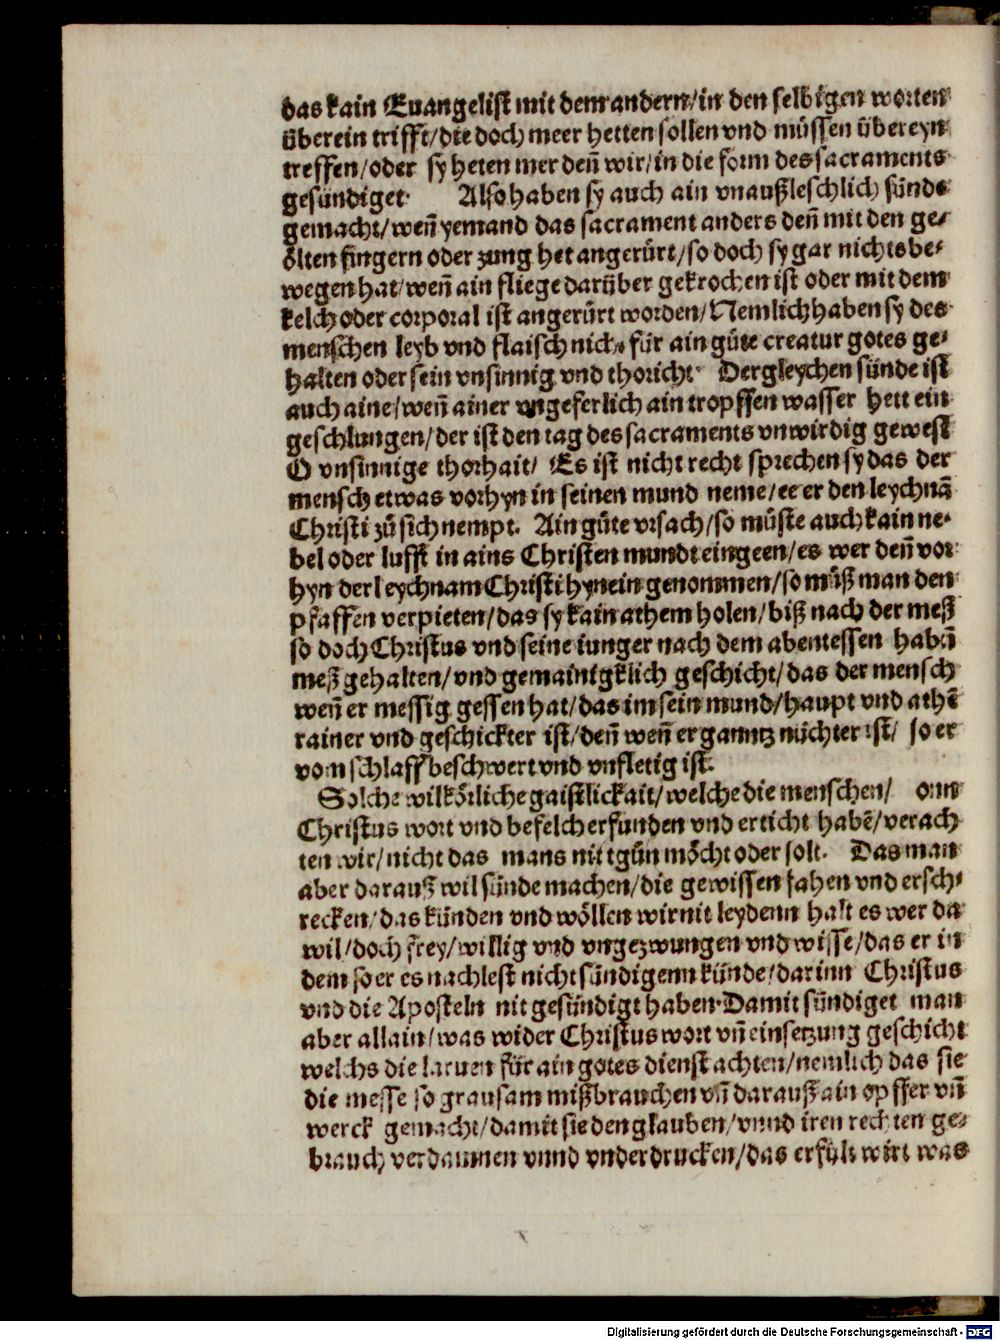 das kain Euangelist mit dem andern/in den selbigen worten
überein trifft/die doch meer hetten sollen vnd müssen übereyn
treffen/oder sy heten mer den̄ wir/in die form des sacraments
gesündiget Also haben sy auch ain vnaußleschlich sünde
gemacht/wen̄ yemand das sacrament anders den̄ mit den ge⸗
ölten fingern oder zung het angerürt/so doch sy gar nichts be⸗
wegen hat/wen̄ ain fliege darüber gekrochen ist oder mit dem
kelch oder corporal ist angerürt worden/Nemlich haben sy des
menschen leyb vnd flaisch nicht für ain gůte creatur gotes ge⸗
halten oder sein vnsinnig vnd thoricht Dergleychen sünde ist
auch aine/wen̄ ainer vngeferlich ain tropffen wasser hett ein
geschlungen/der ist den tag des sacraments vnwirdig gewest
O vnsinnige thorhait/ Es ist nicht recht sprechen sy das der
mensch etwas vorhyn in seinen mund neme/ee er den leychnā
Christi zů sich nempt. Ain gůte vrsach/so můste auch kain ne⸗
bel oder lufft in ains Christen mundt eingeen/es wer den̄ vor
hyn der leychnam Christi hynein genommen/so můß man den
pfaffen verpieten/das sy kain athem holen/biß nach der meß
so doch Christus vnd seine iunger nach dem abentessen habn̄
meß gehalten/vnd gemainigklich geschicht/das der mensch
wen̄ er messig gessen hat/das im sein mund/haupt vnd athē
rainer vnd geschickter ist/den̄ wen̄ er ganntz nüchter ist/ so er
vom schlaff beschwert vnd vnfletig ist.
Solche wilkörliche gaistlickait/welche die menschen/ onn
Christus wort vnd befelch erfunden vnd erticht habē/verach
ten wir/nicht das mans nit tgůn möcht oder solt. Das man
aber darauß wil sünde machen/die gewissen fahen vnd ersch⸗
recken/das künden vnd wöllen wir nit leydenn halt es wer da
wil/doch frey/willig vnd vngezwungen vnd wisse/das er in
dem so er es nachlest nicht sündigenn künde/darinn Christus
vnd die Aposteln nit gesündigt haben. Damit sündiget man
aber allain/was wider Christus wort vn̄ einsetzung geschicht
welchs die laruen für ain gotes dienst achten/nemlich das sie
die messe so grausam mißbrauchen vn̄ darauß ain opffer vn̄
werck gemacht/damit sie den glauben/vnnd iren rechten ge⸗
brauch verdammen vnnd vnderdrucken/das erfült wirt was
Digitalisierung gefördert durch die Deutsche Forschungsgemeinschaft - DFG